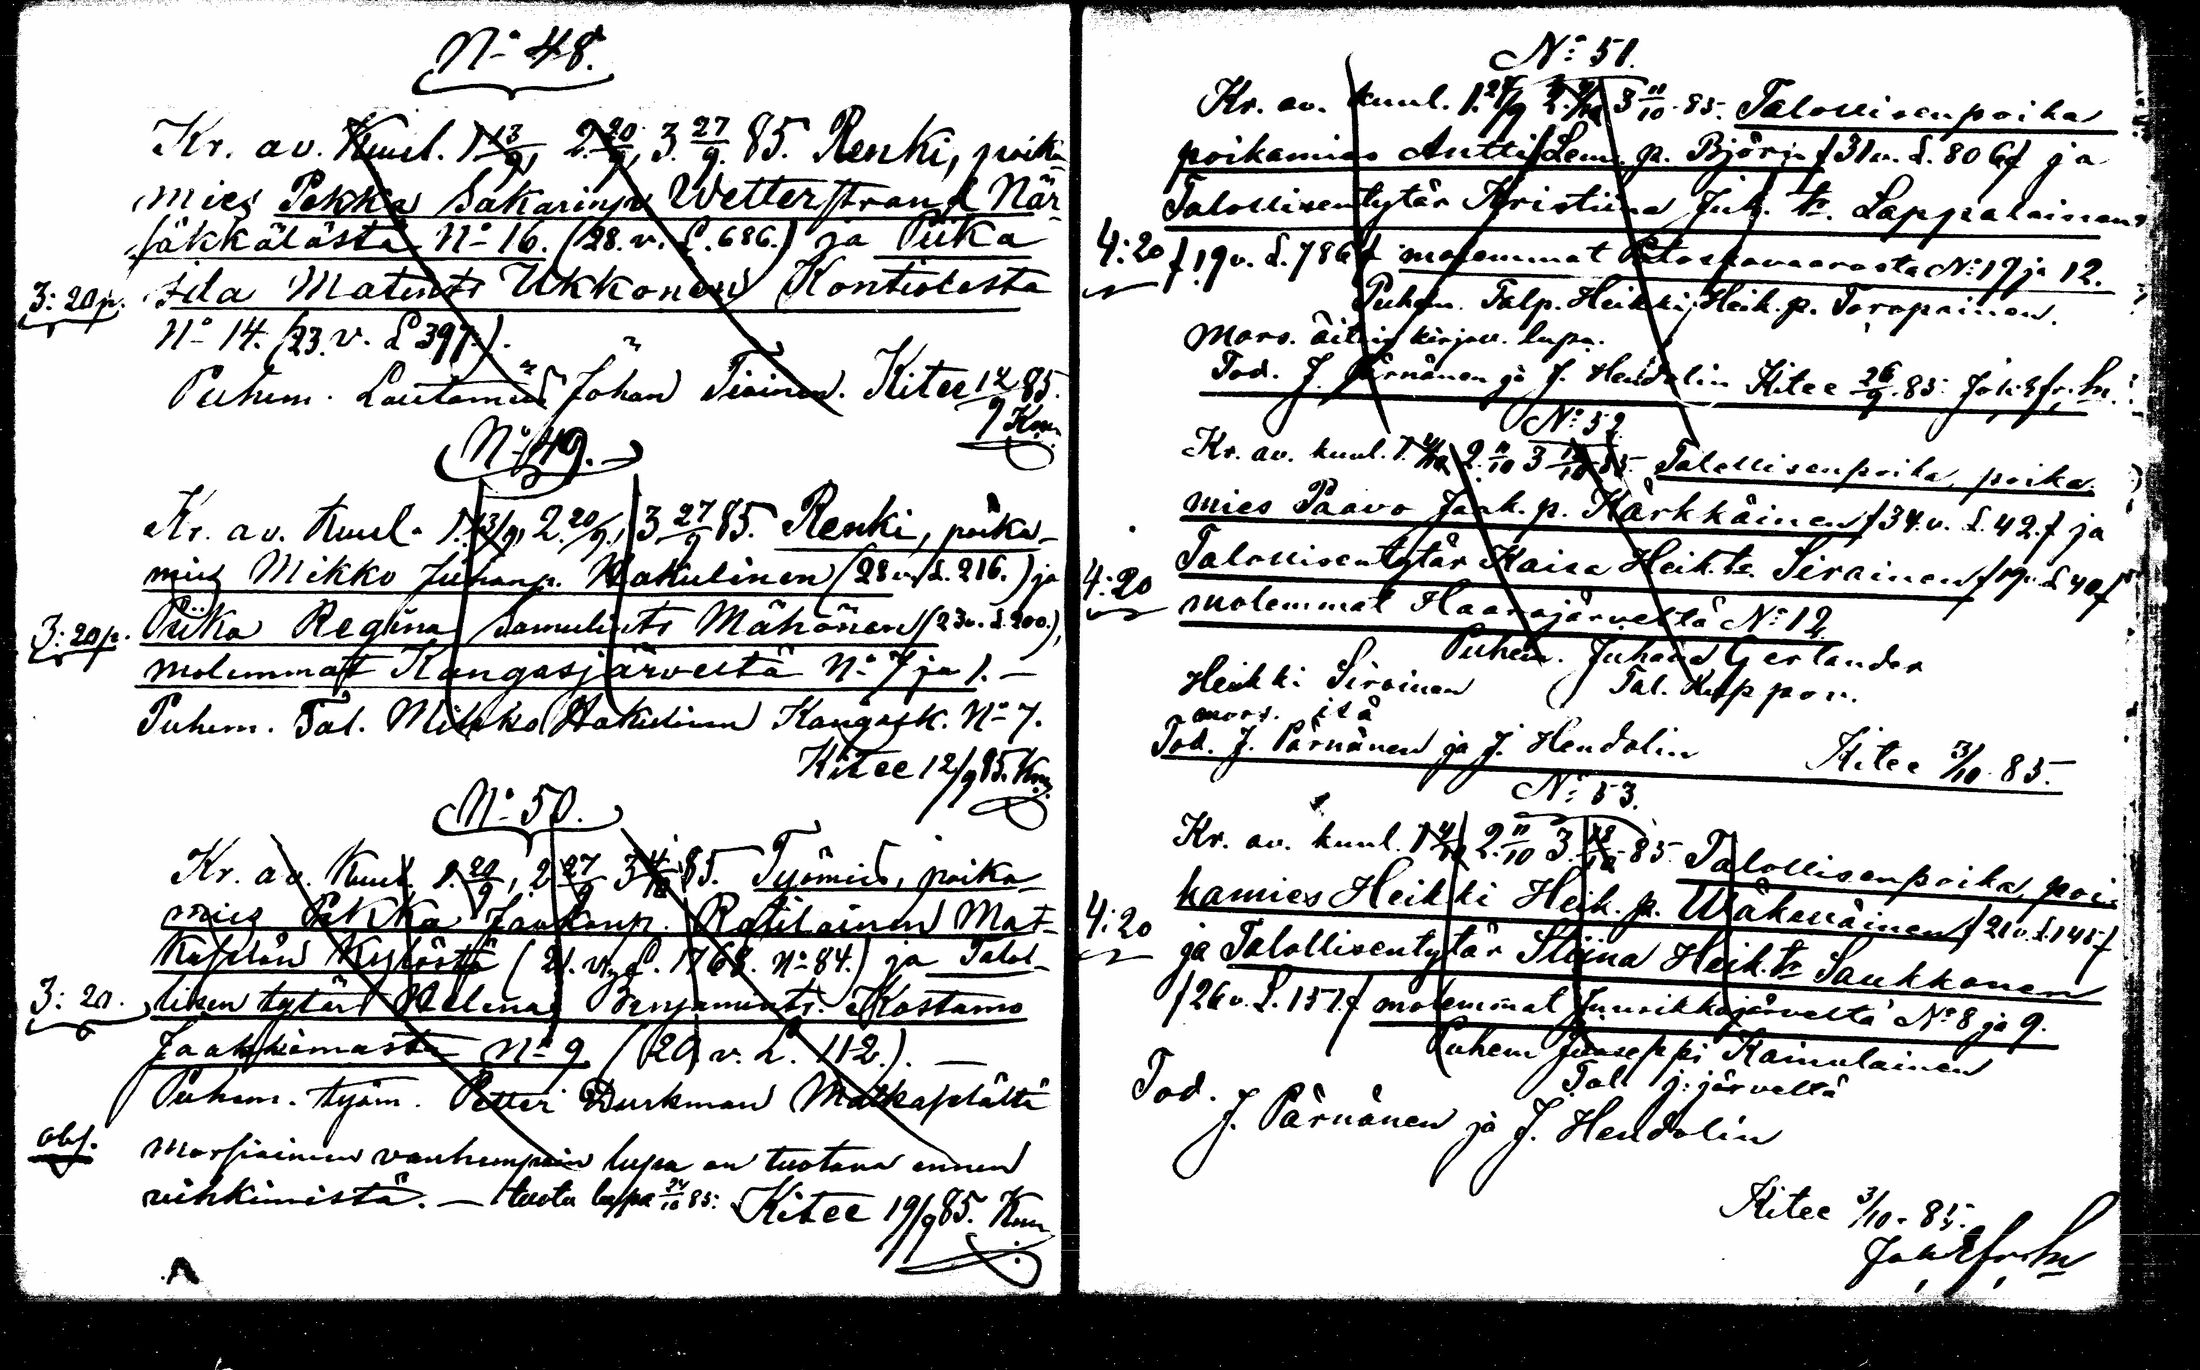 No 48.
Kr. av. Kuul. 1 13/9, 2. 20/9, 3. 27/9. 85. Renki, poika-
mies Pekka Sakarinp. Wetterstrand När-
säkkälästä No 16. (28. v. L. 686.) ja Piika
3: 20 p. Ida Matints Ukkonen Kontiolasta
No 14. (23. v. L 397.).
Puhem. Lautamies Johan Tiainen. Kitee 12/9 85.
No 49.
Kr. av. Kuul. 1. 13/9, 2. 20/9, 3 27/9 85. Renki, poika-
mies Mikko Juhanp. Hakulinen (28 v. L. 216.) ja
3: 20 p. Piika Regina Samulints Mähönen (23 v. L. 200.),
molemmat Kangasjärveltä No 7 ja 1. —
Puhem. Tal. Mikko Hakulinen Kangask. No 7.
Kitee 12/9 85.
No 50.
Kr. av. Kuul. 1. 20/9, 2 27/9 3 4/10 85. Työmies, poika-
mies Pekka Jaakonp. Ratilainen Mat-
kaselän kylästä (21. v. L. 1768. No 84.) ja Talol-
3: 20. lisen tytär Helena Benjamints. Kostamo
Jaakkimasta No 9. (20 v. L. 112.). —
Puhem. työm. Petteri Durkman Matkaselältä
obs. morsiaimen vanhempain lupa on tuotava ennen
vihkimistä. — tuotu lupa 24/10 85. Kitee 19/9 85.
No 51.
Kr. av. kuul. 1. 27/9 2. 4/10 3 11/10. 85. Talollisenpoika
poikamies Antti Lem. p. Björn /31 v. L. 806/ ja
Talollisentytär Kristiina Juh. tr. Lappalainen
4: 20 /19 v. L. 786/ molemmat Potoskavaarasta No 17 ja 12.
Puhem. Talp. Heikki Heik. p. Toropainen.
Mors. äitin kirjall. lupa.
Tod. J. Pärnänen ja J. Hendolin Kitee 26/9. 85.
No 52.
Kr. av. kuul. 1. 4/10 2. 11/10 3 18/10 85. Talollisenpoika, poika-
mies Paavo Jaak. p. Kärkkäinen /34. v. L. 42./ ja
4: 20 Talollisentytär Kaisa Heik. tr. Sirainen /19 v. L 40/
molemmat Haarajärveltä No 12.
Puhem. Juhana Gerlander
Heikki Siroinen Tal.
mors. isä
Tod. J. Pärnänen ja J. Hendolin Kitee 3/10. 85.
No 53.
Kr. av. kuul. 1 4/10 2. 11/10 3. 18/10 85. Talollisenpoika, poi-
4: 20 kamies Heikki Heik. p. Wäkeväinen /21 v. L. 145/
ja Talollisentytär Stiina Heik. tr. Saukkonen
/26 v. L. 151./ molemmat Juurikkajärveltä No 8 ja 9.
Puhem Juuseppi Kainulainen
Tod. Tal. j:järveltä
J. Pärnänen ja J. Hendolin
Kitee 3/10. 85.